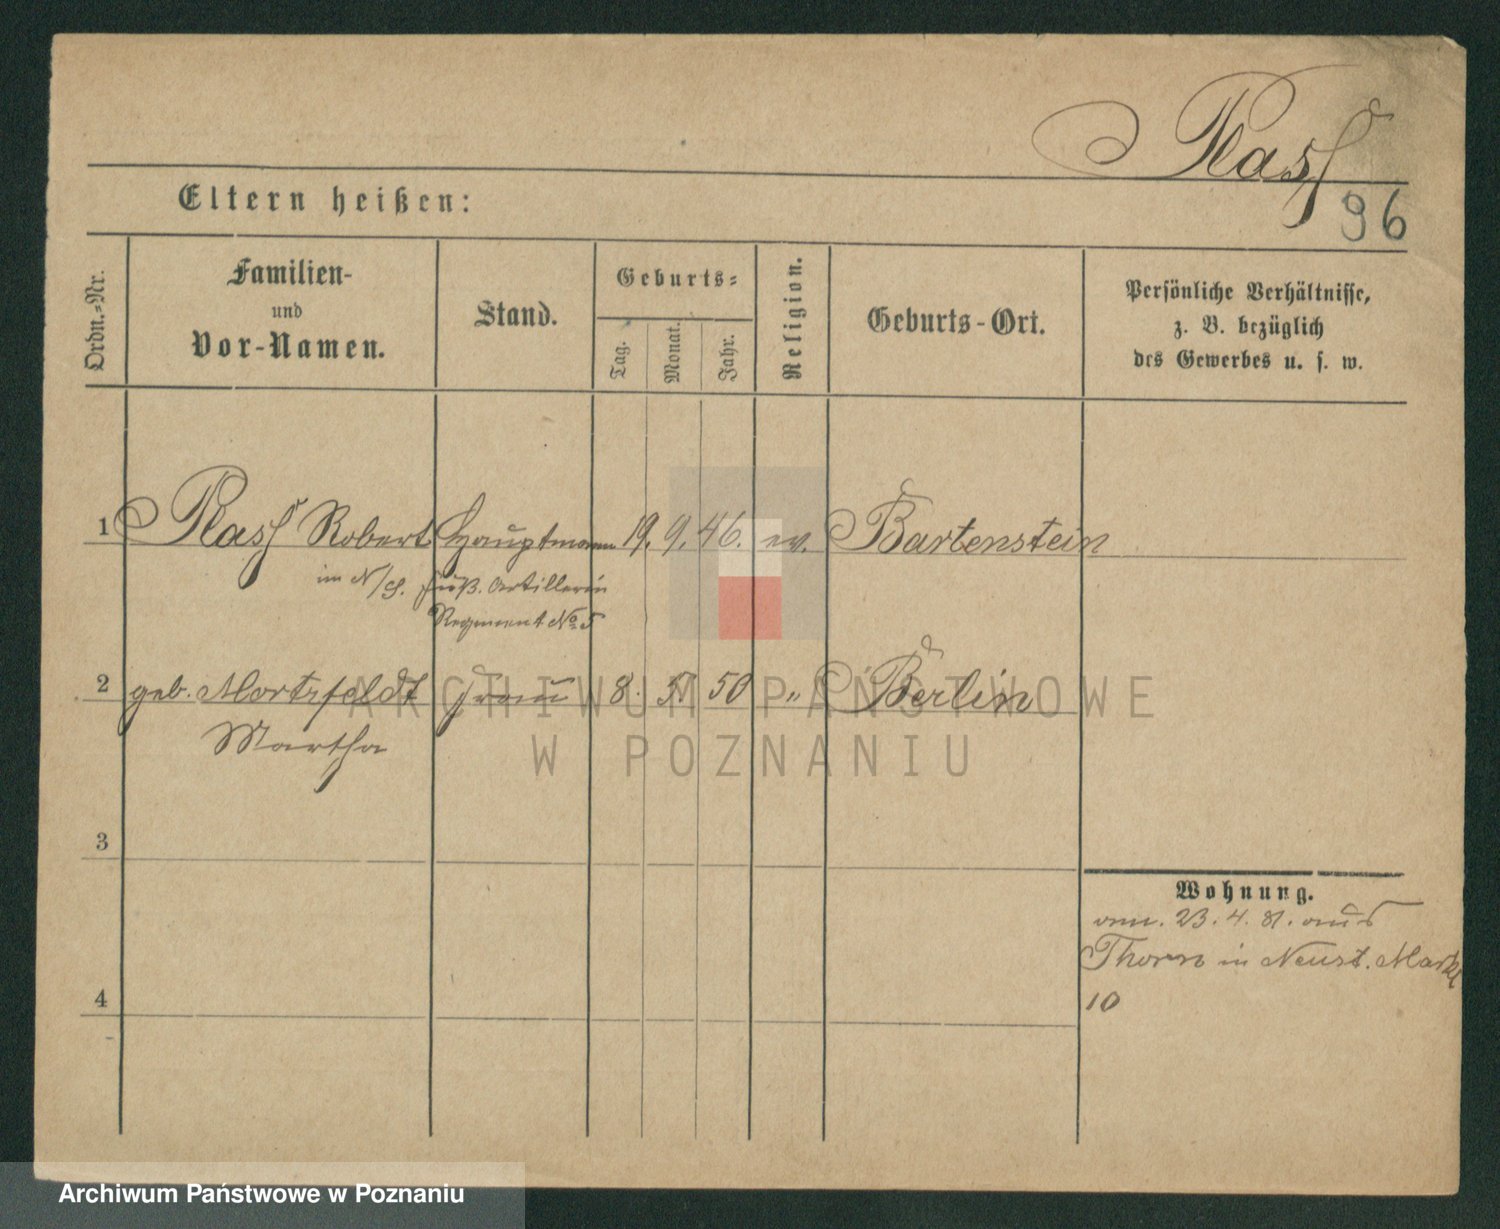 Plasz
96
Eltern heißen:
Ordn.-Nr.
Familien-
und
Vor-Namen.
Stand.
Geburts-
Tag.
Monat.
Jahr.
Religion.
Geburts-Ort.
Persönliche Verhältnisse,
z. B. bezüglich
des Gewerbes u. s. w.
1 Robert Hauptmann 19. 9. 46. ev. Bartenstein
im Fuß. Artillerie
Regiment No 5
2 geb. Mortzfeldt Frau 8. 5. 50 " Berlin
Martha
3
Wohnung.
23. 4. 81. aus
Thorn in Neust. Markt
4
10
ARCHIWUM PAŃSTWOWE
W POZNANIU
Archiwum Państwowe w Poznaniu